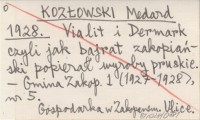 KOZŁOWSKI Medard
1928. Vialit i Dermark
czyli jak bajrat zakopiań-
ski popierał wyroby pruskie.
— Gmina Zakop. 1 (1927-1928),
nr 5.
Gospodarka w Zakopanem. Ulice.